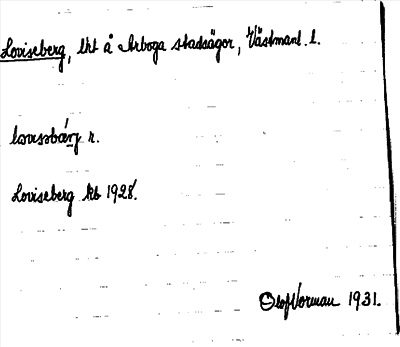 Loviseberg, lht å Arboga stadsägor, Västmanl. l.
lovisabærj r.
Loviseberg kb 1928.
Olof Vorman 1931.